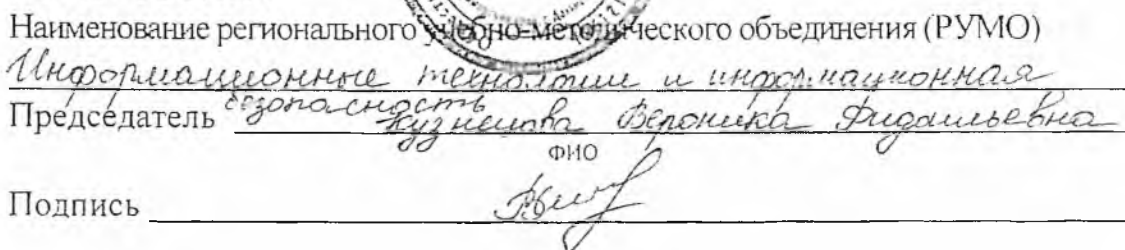 Наименование регионального учебно-методического объединения (РУМО)
Информационные технологии и информационная
безопасность
Председатель Кузнецова Вероника Фидаильевна
ФИО
Подпись